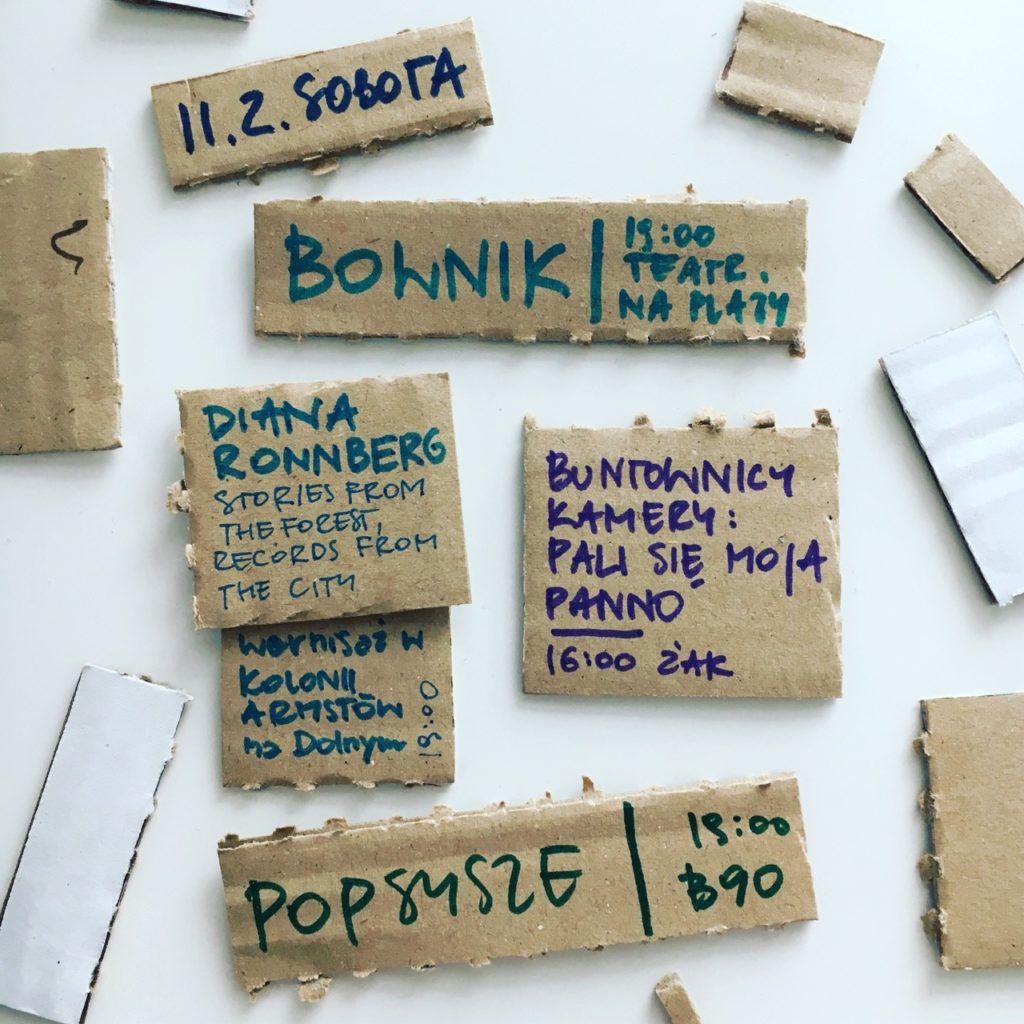 11.2. SOBOTA
BOWNIK | 19:00
TEATR.
NA PLAŻY
DIANA
RONNBERG
STORIES FROM
THE FOREST,
RECORDS FROM
THE CITY
wernisaż w
KOLONII
ARTYSTÓW
na Dolnym 19:00
BUNTOWNICY
KAMERY:
PALI SIĘ MOJA
PANNO
16:00 ŻAK
POPSYSZE | 19:00
B90